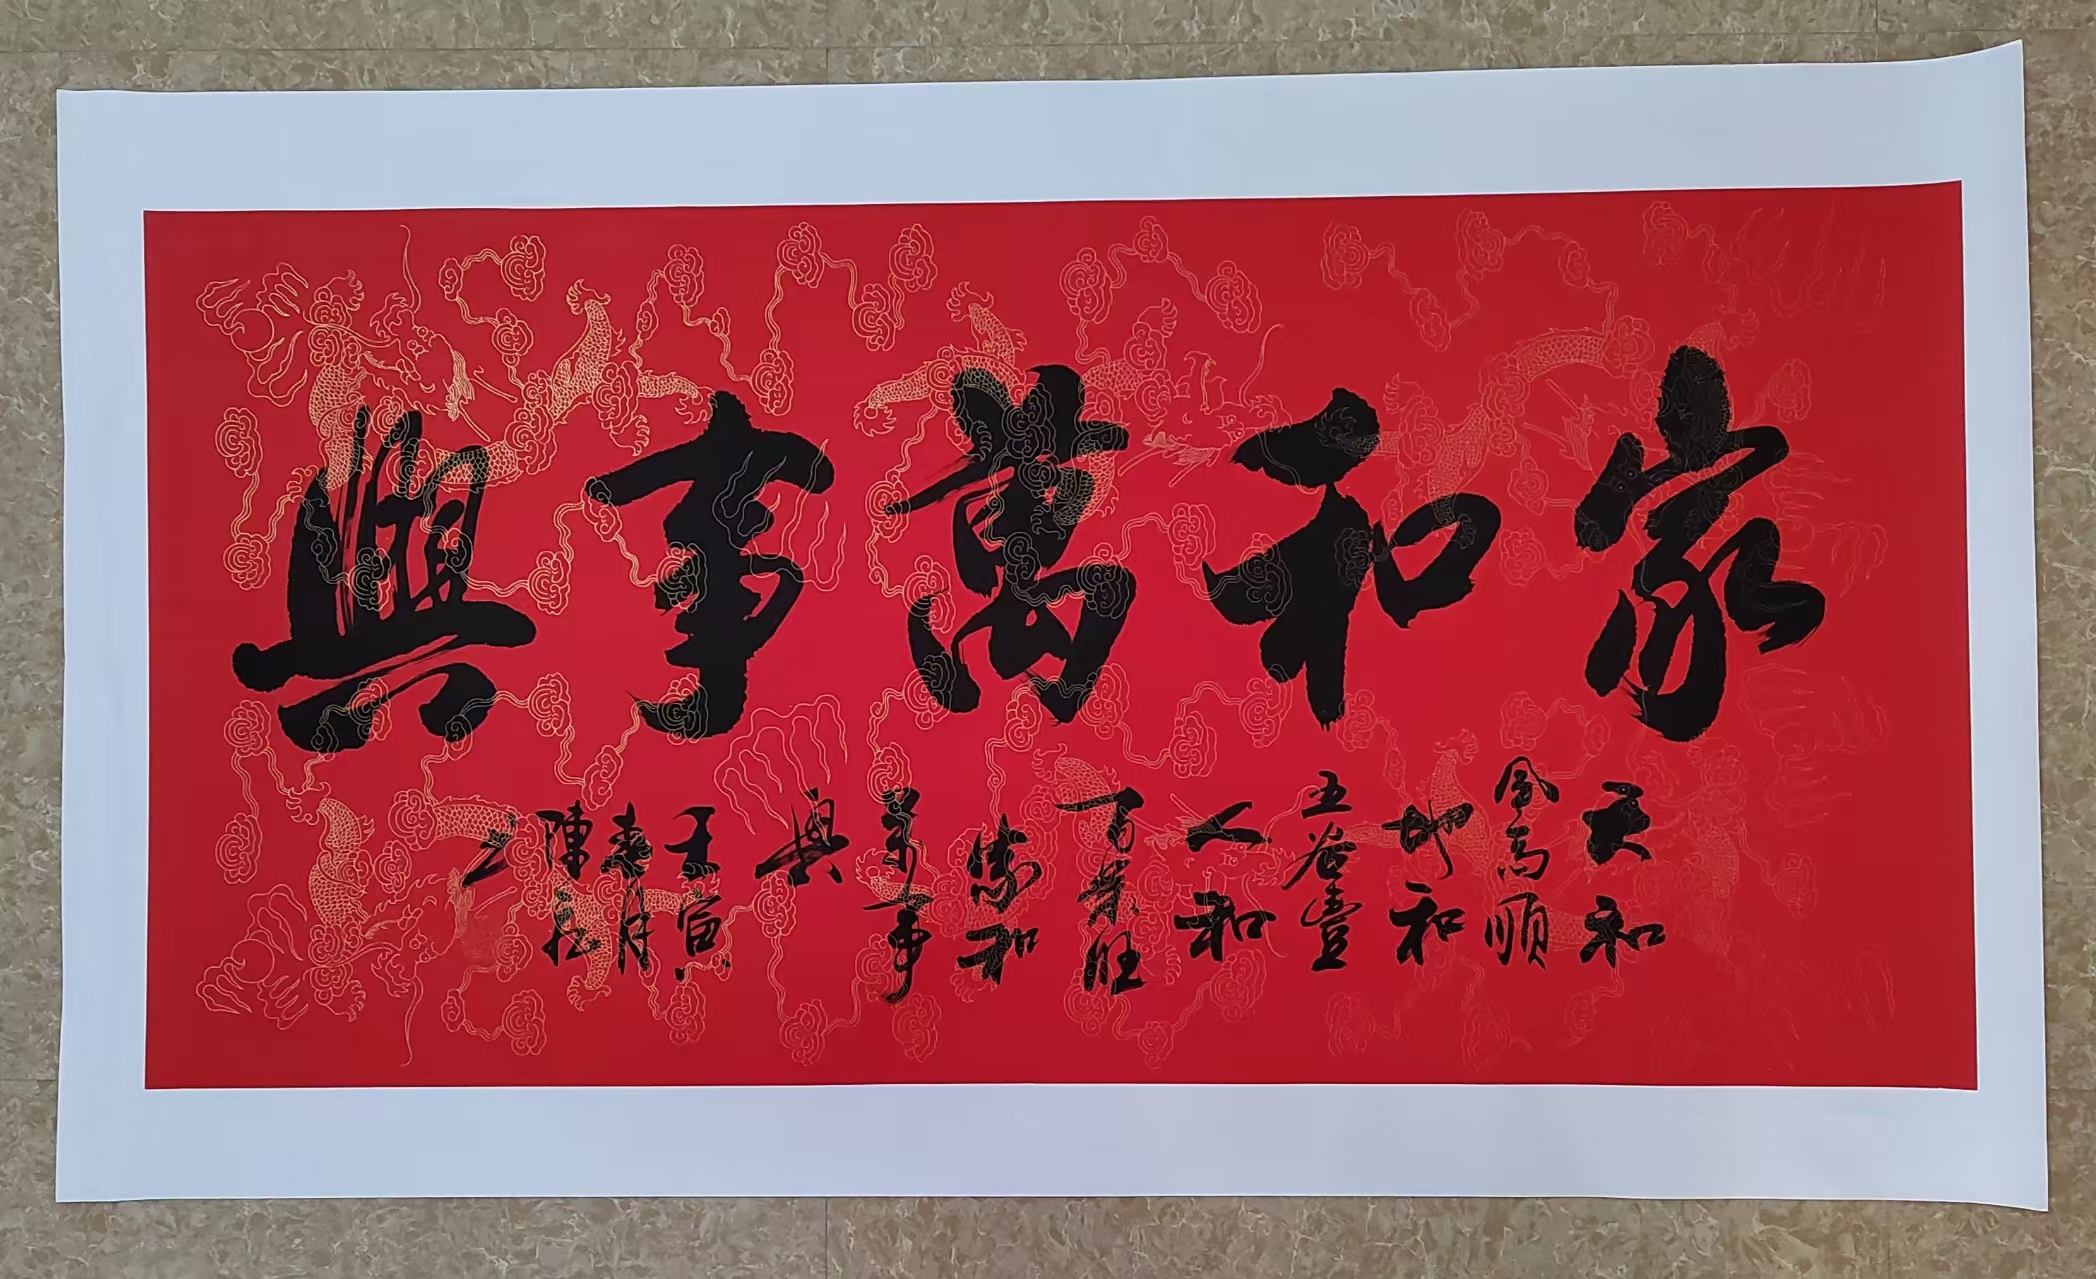 家和萬事興
天和
風雨順
地和
五谷豐
人和
百業旺
家和
萬事
興
壬寅
春月
陳